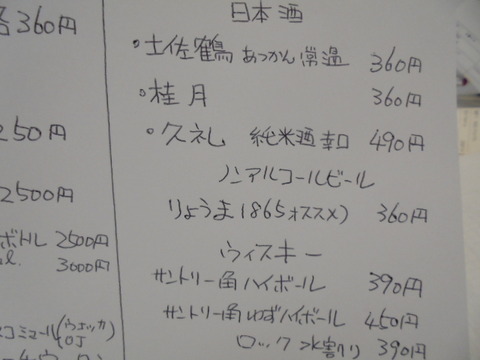 日本酒
・土佐鶴 あつかん 常温 360円
・桂月 360円
・久礼 純米酒 辛口 490円
ノンアルコールビール
りょうま(865オススメ) 360円
ウィスキー
サントリー角ハイボール 390円
サントリー角ゆずハイボール 450円
ロック 水割り 390円
360円
250円
2500円
ボトル 2500円
3000円
(ウォッカ
OJ